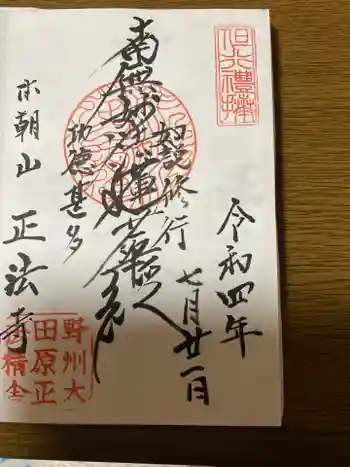 令和四年
七月廿一日
如説修行
南無妙法蓮華経
功徳甚多
本朝山 正法寺
野州大
田原正